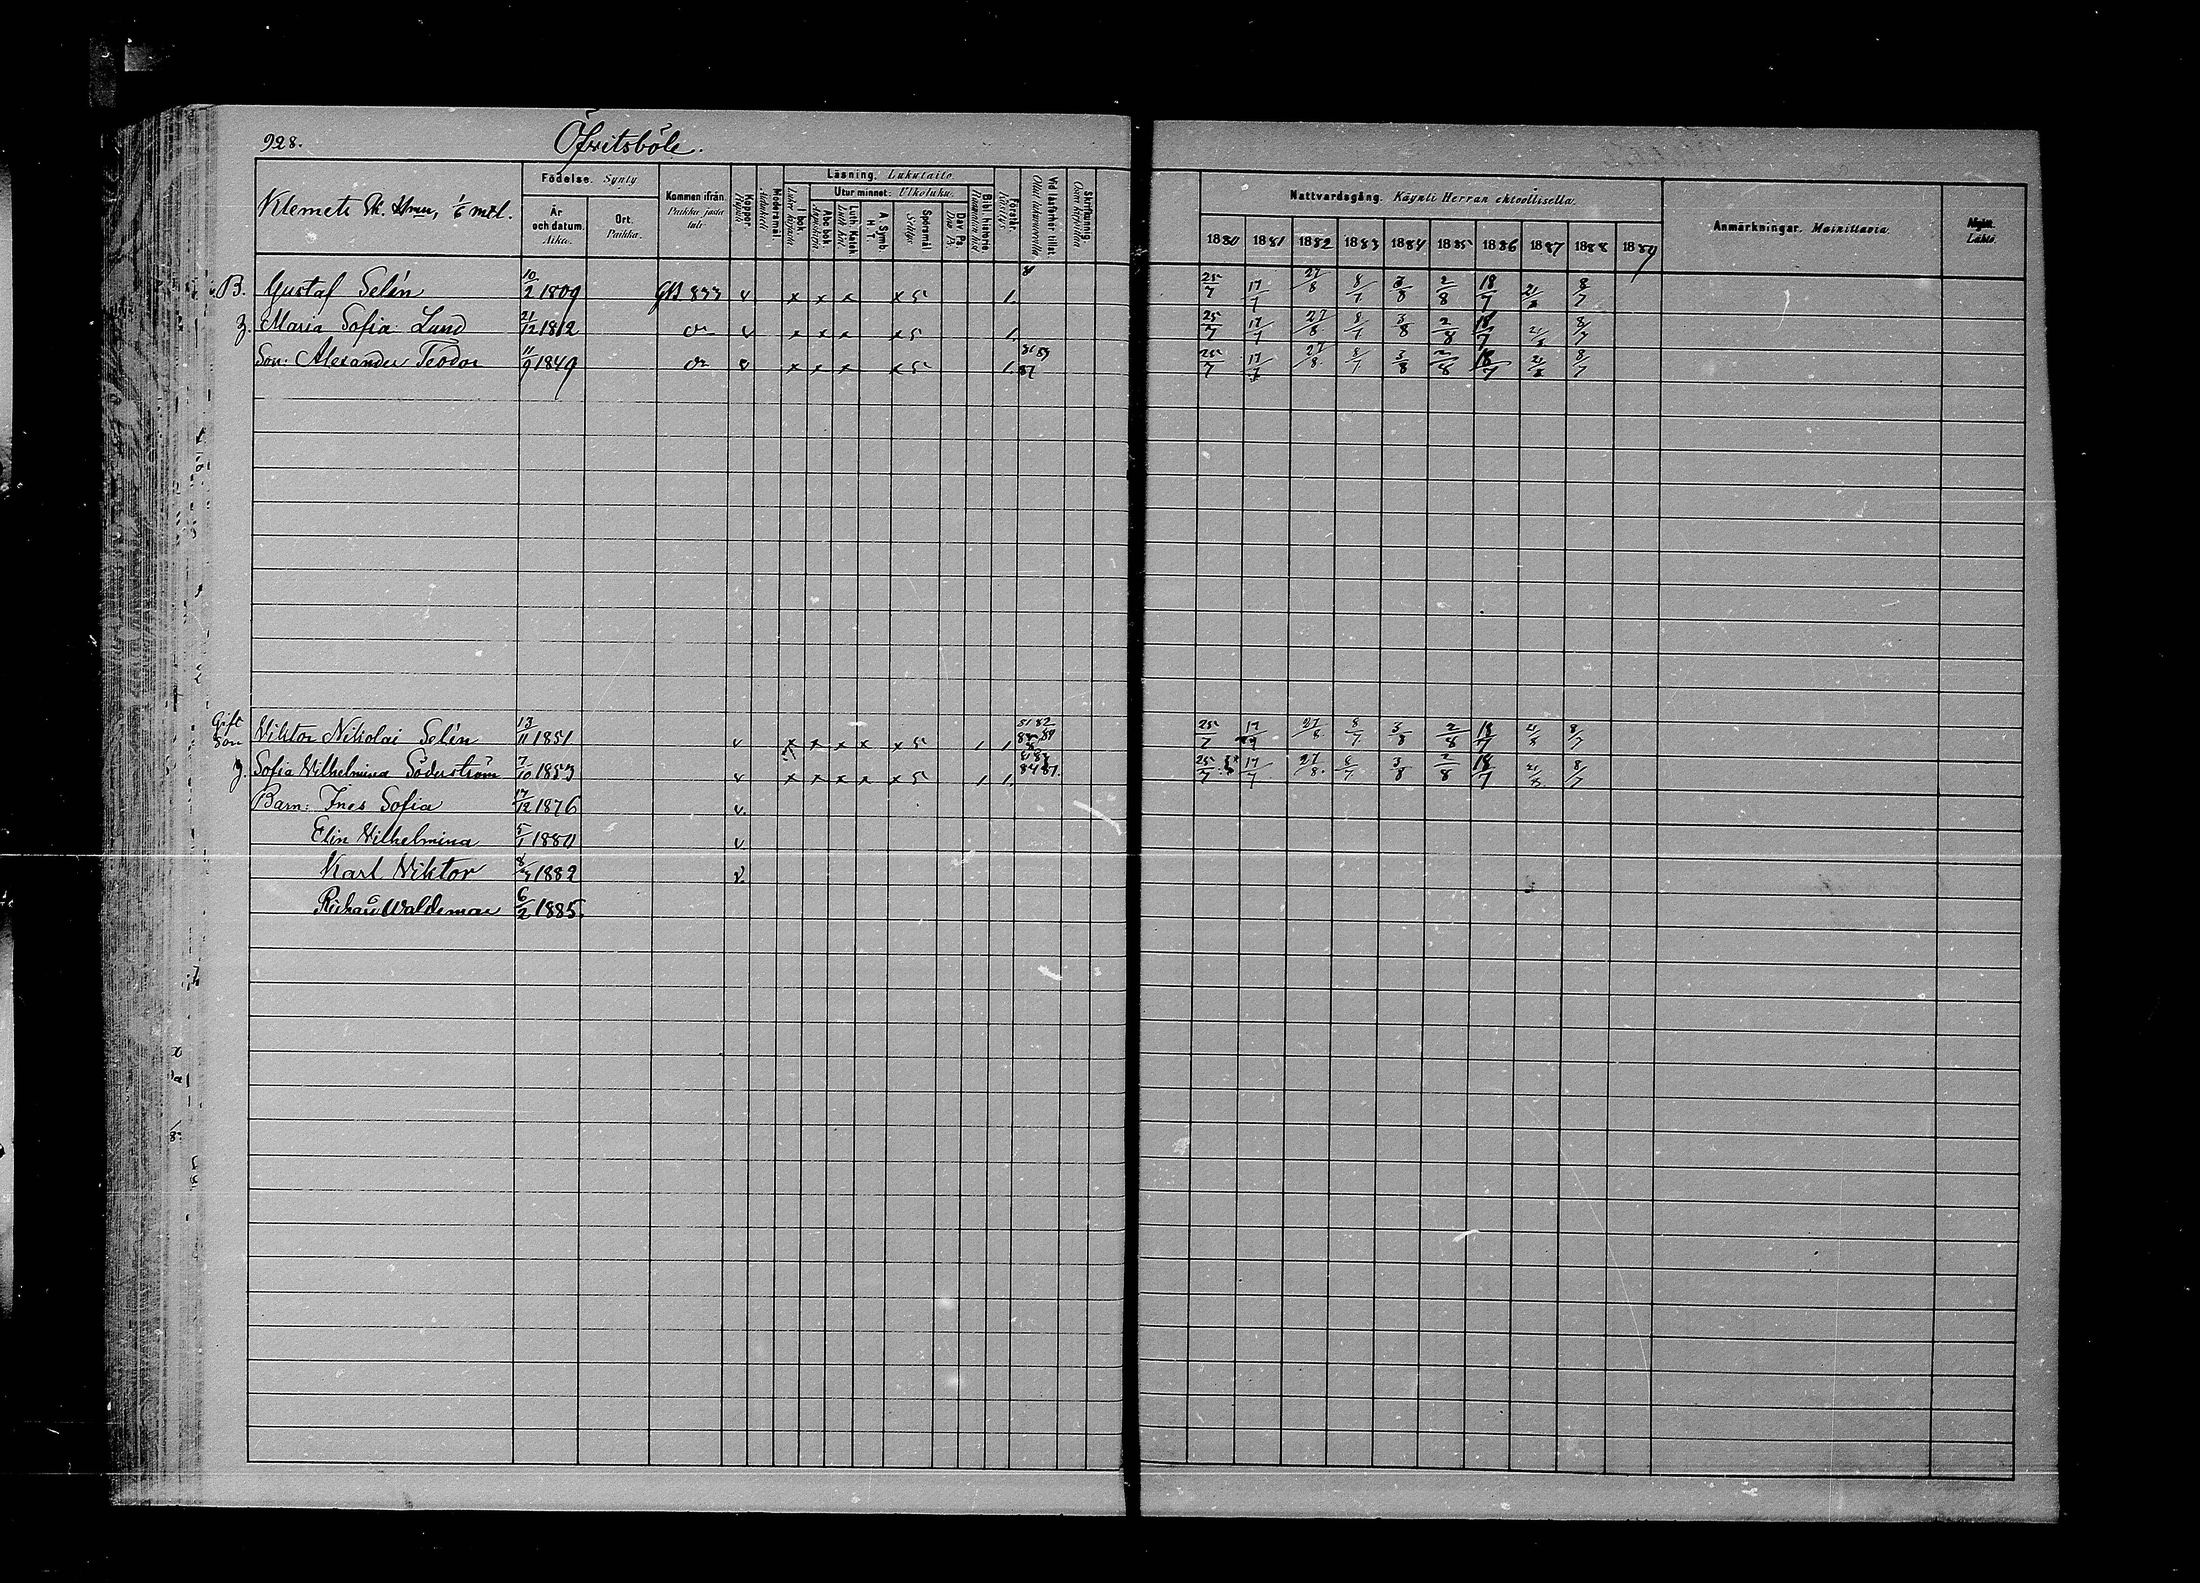 928. Öfvitsböle.
Klemets Sk. Hmn, 1/6 mtl.
Födelse. Synty
År och datum. Aika.
Ort. Paikka.
Kommen ifrån. Paikka josta tuli
Koppor. Rupuli
Modersmål. Äidinkieli
Läsning. Lukutaito.
I bok Luku kirjasta
Utur minnet. Ulkoluku.
Abc bok Aapiskirja.
Luth. Katek.
A. Symb. H. T.
Spörsmål Selitys
Dav. Ps. Daw. Ps.
Bibl. historie.
Förstår. Käsitys
Vid läsförhör tillst. Ollut lukuuvoroilla
Skriftkunnig. Osaa kirjoittaa
Nattvardsgång. Käynti Herran ehtoollisella.
1880 1881 1882 1883 1884 1885 1886 1887 1888 1889
Anmärkningar. Mainittavia.
Lähtö.
B. Gustaf Selén 10/2 1809 GB 833 v x x x x 5 1. 25/7 17/7 27/8 8/7 3/8 2/8 18/7 21/8 8/7
h. Maria Sofia Lund 21/12 1812 v x x x x 5 1. 25/7 17/7 27/8 8/7 3/8 2/8 18/7 21/8 8/7
Son: Alexander Teodor 11/9 1849 v x x x x 5 1. 87 25/7 17/7 27/8 8/7 3/8 2/8 18/7 21/8 8/7
Gift
Son Viktor Nikolai Selén 13/11 1851 v x x x x x 5 1 1 81 82 25/7 17/7 27/8 8/7 3/8 2/8 18/7 21/8 8/7
h. Sofia Vilhelmina Söderström 7/10 1853 v x x x x x 5 1 1. 84 87. 25/7 17/7 27/8 8/7 3/8 2/8 18/7 21/8 8/7
Barn: Ines Sofia 17/12 1876 v.
Elin Vilhelmina 5/1 1880 v
Karl Viktor 1882 v.
Rickard Waldemar 6/2 1885.